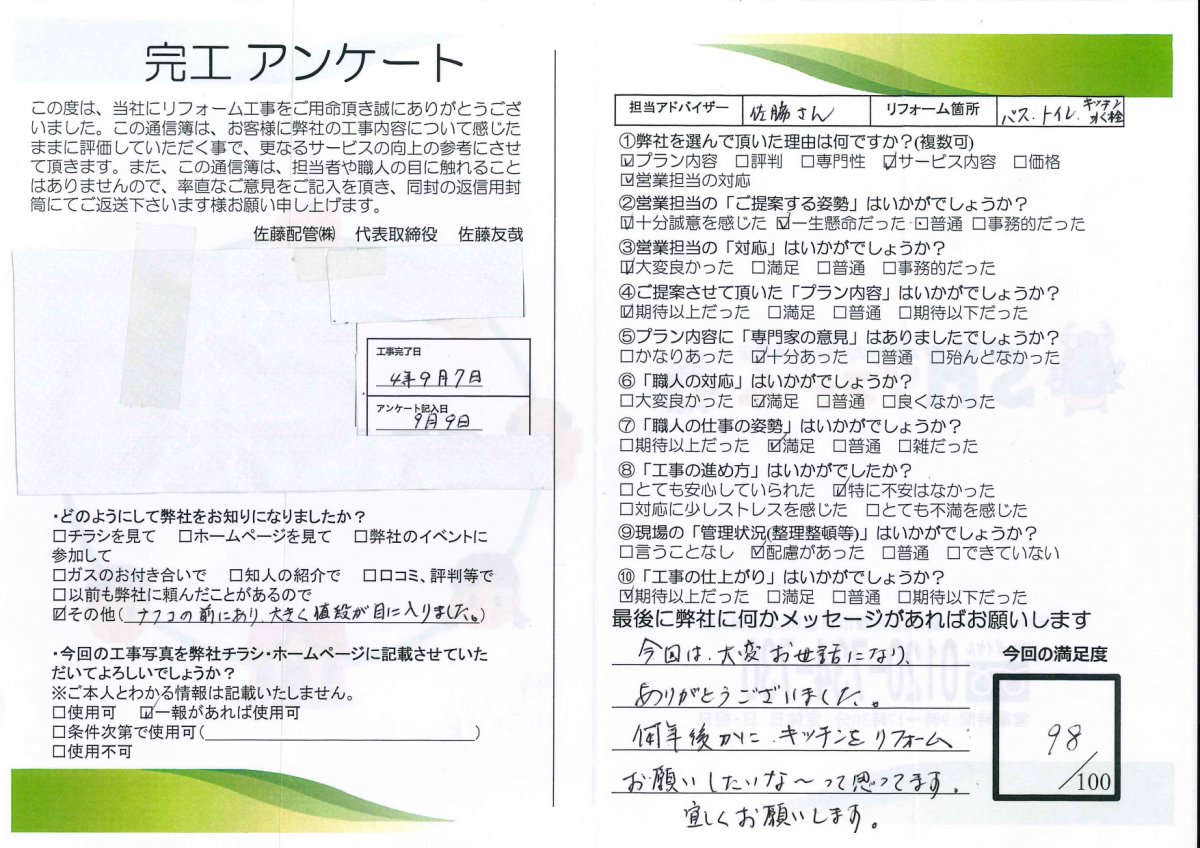 完工 アンケート
この度は、当社にリフォーム工事をご用命頂き誠にありがとうござ
いました。この通信簿は、お客様に弊社の工事内容について感じた
ままに評価していただく事で、更なるサービスの向上の参考にさせ
て頂きます。また、この通信簿は、担当者や職人の目に触れること
はありませんので、率直なご意見をご記入を頂き、同封の返信用封
筒にてご返送下さいます様お願い申し上げます。
佐藤配管㈱ 代表取締役 佐藤友哉
工事完了日
4年9月7日
アンケート記入日
9月9日
・どのようにして弊社をお知りになりましたか？
□チラシを見て □ホームページを見て □弊社のイベントに
参加して
□ガスのお付き合いで □知人の紹介で □口コミ、評判等で
□以前も弊社に頼んだことがあるので
☑その他(ナフコの前にあり、大きく値段が目に入りました。)
・今回の工事写真を弊社チラシ・ホームページに記載させていた
だいてよろしいでしょうか？
※ご本人とわかる情報は記載いたしません。
□使用可 ☑一報があれば使用可
□条件次第で使用可( )
□使用不可
担当アドバイザー 佐脇さん リフォーム箇所 バス・トイレ・キッチン水栓
①弊社を選んで頂いた理由は何ですか？(複数可)
☑プラン内容 □評判 □専門性 ☑サービス内容 □価格
☑営業担当の対応
②営業担当の「ご提案する姿勢」はいかがでしょうか？
☑十分誠意を感じた ☑一生懸命だった □普通 □事務的だった
③営業担当の「対応」はいかがでしょうか？
☑大変良かった □満足 □普通 □事務的だった
④ご提案させて頂いた「プラン内容」はいかがでしょうか？
☑期待以上だった □満足 □普通 □期待以下だった
⑤プラン内容に「専門家の意見」はありましたでしょうか？
□かなりあった ☑十分あった □普通 □殆んどなかった
⑥「職人の対応」はいかがでしょうか？
□大変良かった ☑満足 □普通 □良くなかった
⑦「職人の仕事の姿勢」はいかがでしょうか？
□期待以上だった ☑満足 □普通 □雑だった
⑧「工事の進め方」はいかがでしたか？
□とても安心していられた ☑特に不安はなかった
□対応に少しストレスを感じた □とても不満を感じた
⑨現場の「管理状況(整理整頓等)」はいかがでしょうか？
□言うことなし ☑配慮があった □普通 □できていない
⑩「工事の仕上がり」はいかがでしょうか？
☑期待以上だった □満足 □普通 □期待以下だった
最後に弊社に何かメッセージがあればお願いします
今回は、大変お世話になり、
ありがとうございました。
何年後かに、キッチンをリフォーム
お願いしたいな〜って思ってます。
宜しくお願いします。
今回の満足度
98
/100